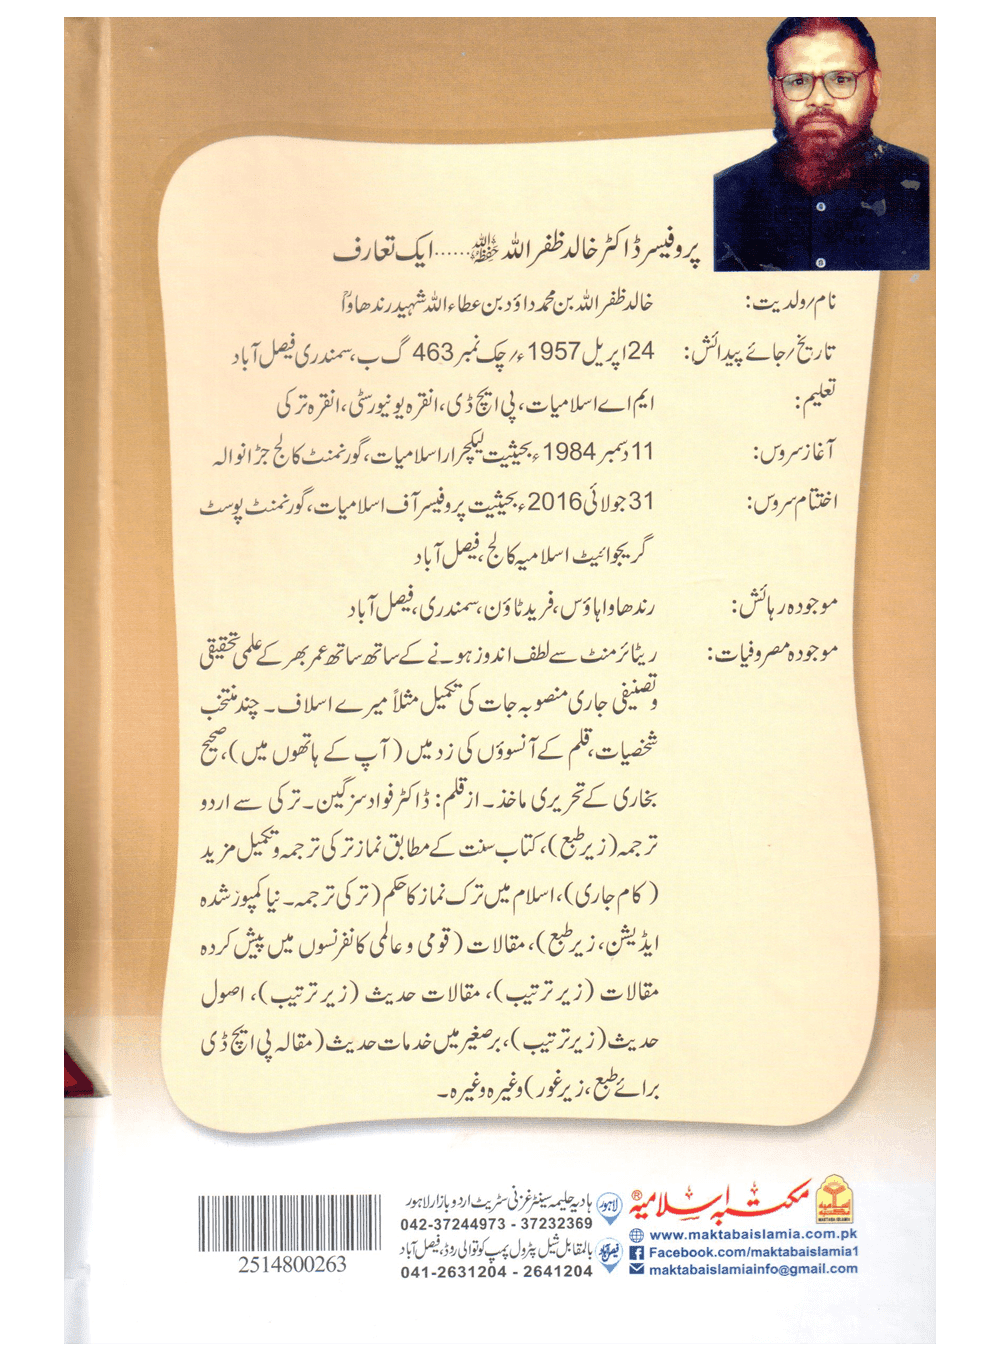 پروفیسر ڈاکٹر خالد ظفر اللہ حفظہ اللہ ...... ایک تعارف
نام/ولدیت: خالد ظفر اللہ بن محمد داؤد بن عطاء اللہ شہید رندھاواؒ
تاریخ/جائے پیدائش: 24 اپریل 1957ء/چک نمبر 463 گ ب، سمندری فیصل آباد
تعلیم: ایم اے اسلامیات، پی ایچ ڈی، انقرہ یونیورسٹی، انقرہ ترکی
آغاز سروس: 11 دسمبر 1984ء بحیثیت لیکچرار اسلامیات، گورنمنٹ کالج جڑانوالہ
اختتام سروس: 31 جولائی 2016ء بحیثیت پروفیسر آف اسلامیات، گورنمنٹ پوسٹ
گریجوائیٹ اسلامیہ کالج، فیصل آباد
موجودہ رہائش: رندھاوا ہاؤس، فرید ٹاؤن، سمندری، فیصل آباد
موجودہ مصروفیات: ریٹائرمنٹ سے لطف اندوز ہونے کے ساتھ ساتھ عمر بھر کے علمی تحقیقی
و تصنیفی جاری منصوبہ جات کی تکمیل مثلاً میرے اسلاف۔ چند منتخب
شخصیات، قلم کے آنسوؤں کی زد میں (آپ کے ہاتھوں میں)، صحیح
بخاری کے تحریری ماخذ۔ از قلم: ڈاکٹر فواد سزگین۔ ترکی سے اردو
ترجمہ (زیر طبع)، کتاب سنت کے مطابق نماز ترکی ترجمہ و تکمیل مزید
(کام جاری)، اسلام میں ترک نماز کا حکم (ترکی ترجمہ۔ نیا کمپوز شدہ
ایڈیشن، زیر طبع)، مقالات (قومی و عالمی کانفرنسوں میں پیش کردہ
مقالات (زیر ترتیب)، مقالات حدیث (زیر ترتیب)، اصول
حدیث (زیر ترتیب)، برصغیر میں خدمات حدیث (مقالہ پی ایچ ڈی
برائے طبع، زیر غور) وغیرہ وغیرہ۔
مکتبہ اسلامیہ®
MAKTABA ISLAMIA
www.maktabaislamia.com.pk
Facebook.com/maktabaislamia1
maktabaislamiainfo@gmail.com
لاہور ہادیہ حلیمہ سینٹر غزنی سٹریٹ اردو بازار لاہور
042-37244973 - 37232369
فیصل آباد بالمقابل شیل پٹرول پمپ کوتوالی روڈ، فیصل آباد
041-2631204 - 2641204
2514800263